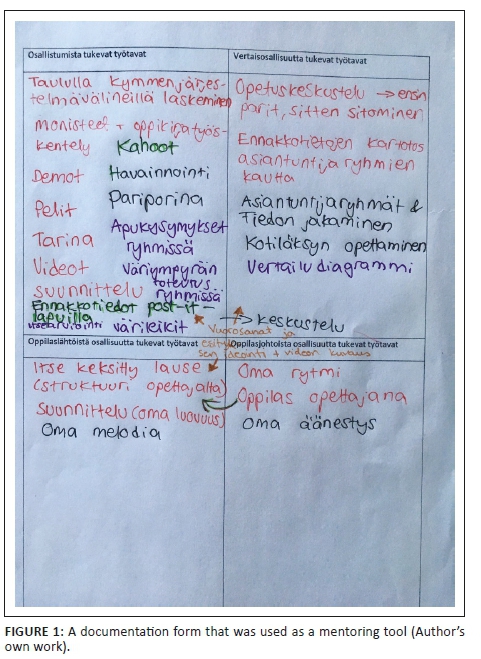 Osallistumista tukevat työtavat
Taululla kymmenjärjes-
telmävälineillä laskeminen
monisteet + oppikirjatyös-
kentely Kahoot
Demot Havainnointi
Pelit Pariporina
Tarina Apukysymykset
ryhmissä
Videot Väriympyrän
toteutus
suunnittelu ryhmissä
Ennakkotiedot post-it-
lapuilla
itsearviointi värileikit
Vertaisosallisuutta tukevat työtavat
Opetuskeskustelu → ensin
parit, sitten sitominen
Ennakkotietojen kartotos
asiantuntijaryhmien
kautta
Asiantuntijaryhmät &
Tiedon jakaminen
Kotiläksyn opettaminen
Vertailudiagrammi
→ keskustelu
Vuorosanat ja
Oppilaslähtöistä osallisuutta tukevat työtavat
esityksen ideointi + videon kuvaus
Itse keksitty lause
(struktuuri opettajalta)
Suunnittelu (oma luovuus)
Oma melodia
Oppilasjohtoista osallisuutta tukevat työtavat
Oma rytmi
Oppilas opettajana
Oma äänestys
FIGURE 1: A documentation form that was used as a mentoring tool (Author's
own work).